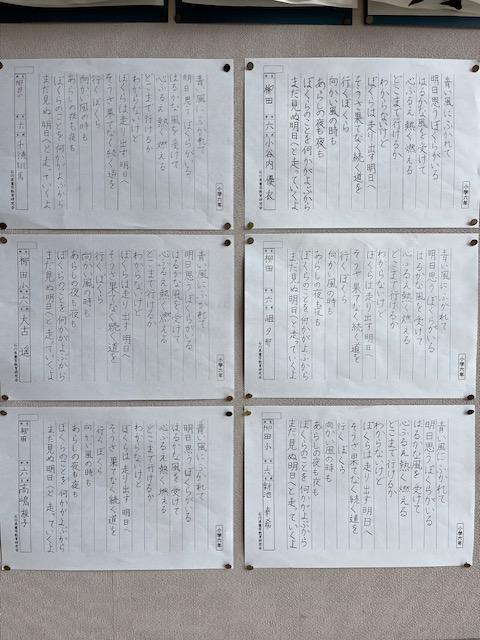 小学六年
青い風にふかれて
明日思うぼくらがいる
はるかな風を受けて
心ふるえ熱く燃える
どこまで行けるか
わからないけど
ぼくらは走り出す明日へ
そうさ果てなく続く道を
行くぼくら
向かい風の時も
あらしの夜も夜も
ぼくらのことを何かがよぶから
まだ見ぬ明日へと走っていくよ
柳田 六 小谷内 優衣
小学六年
青い風にふかれて
明日思うぼくらがいる
はるかな風を受けて
心ふるえ熱く燃える
どこまで行けるか
わからないけど
ぼくらは走り出す明日へ
そうさ果てなく続く道を
行くぼくら
向かい風の時も
あらしの夜も夜も
ぼくらのことを何かがよぶから
まだ見ぬ明日へと走っていくよ
六 千徳
小学六年
青い風にふかれて
明日思うぼくらがいる
はるかな風を受けて
心ふるえ熱く燃える
どこまで行けるか
わからないけど
ぼくらは走り出す明日へ
そうさ果てなく続く道を
行くぼくら
向かい風の時も
あらしの夜も夜も
ぼくらのことを何かがよぶから
まだ見ぬ明日へと走っていくよ
柳田 六
小学六年
青い風にふかれて
明日思うぼくらがいる
はるかな風を受けて
心ふるえ熱く燃える
どこまで行けるか
わからないけど
ぼくらは走り出す明日へ
そうさ果てなく続く道を
行くぼくら
向かい風の時も
あらしの夜も夜も
ぼくらのことを何かがよぶから
まだ見ぬ明日へと走っていくよ
柳田小 六 大古 遥
小学六年
青い風にふかれて
明日思うぼくらがいる
はるかな風を受けて
心ふるえ熱く燃える
どこまで行けるか
わからないけど
ぼくらは走り出す明日へ
そうさ果てなく続く道を
行くぼくら
向かい風の時も
あらしの夜も夜も
ぼくらのことを何かがよぶから
まだ見ぬ明日へと走っていくよ
柳田小 六 新池 幸希
小学六年
青い風にふかれて
明日思うぼくらがいる
はるかな風を受けて
心ふるえ熱く燃える
どこまで行けるか
わからないけど
ぼくらは走り出す明日へ
そうさ果てなく続く道を
行くぼくら
向かい風の時も
あらしの夜も夜も
ぼくらのことを何かがよぶから
まだ見ぬ明日へと走っていくよ
柳田 六 高嶋